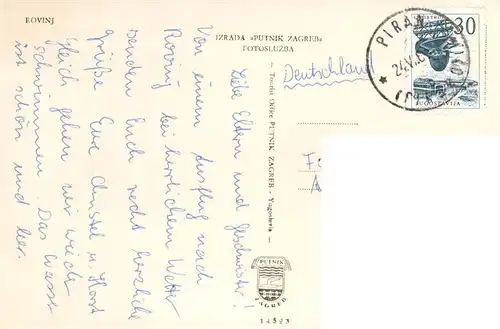 ROVINJ
IZRADA »PUTNIK ZAGREB«
FOTOSLUŽBA
Liebe Eltern und Geschwister!
Von einem Ausflug nach
Rovinj bei herrlichem Wetter
senden Euch recht herzliche
Grüße Eure Christel u. Horst
Gleich gehen wir wieder
schwimmen. Das Wasser
ist schön und leer.
— Tourist Office PUTNIK ZAGREB - Yugoslavia —
Deutschland
PIRAN
30
JUGOSLAVIJA
PUTNIK
ZAGREB
14523